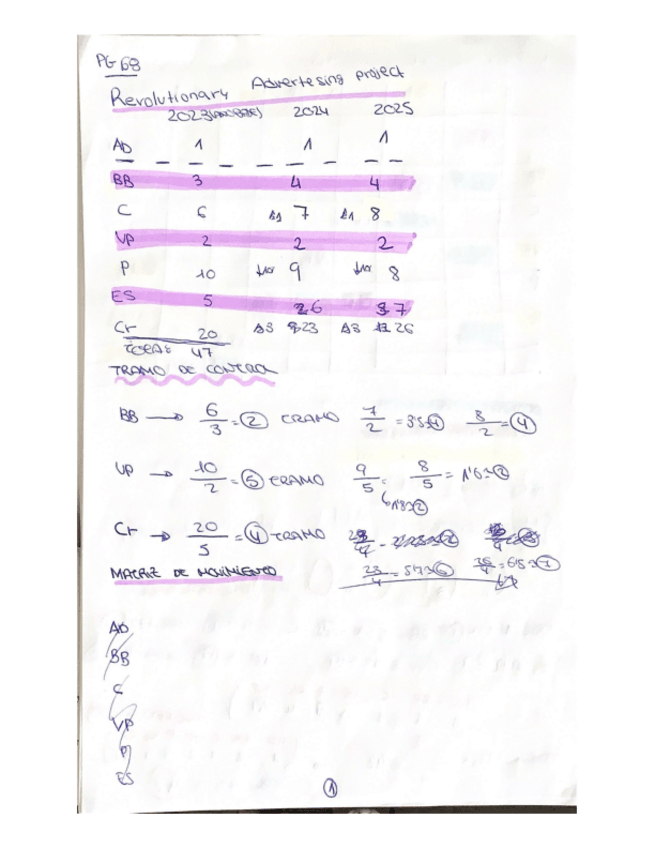 PG 68
Revolutionary Advertesing project
2023 2024 2025
AD 1 1 1
BB 3 4 4
C 6 7 8
VP 2 2 2
P 10 9 8
ES 5 6 7
Cr 20 23 26
TOTAL 47
TRAMO DE CONTROL
BB → 6/3 = 2 TRAMO 7/2 = 3'5 → 4 8/2 = 4
VP → 10/2 = 5 TRAMO 9/5 = 8/5 = 1'6 → 2
1'8 → 2
Cr → 20/5 = 4 TRAMO
MATRIZ DE MOVIMIENTO 23/4 = 5'7 → 6 26/4 = 6'5 → 7
AD
BB
C
VP
P
ES
1